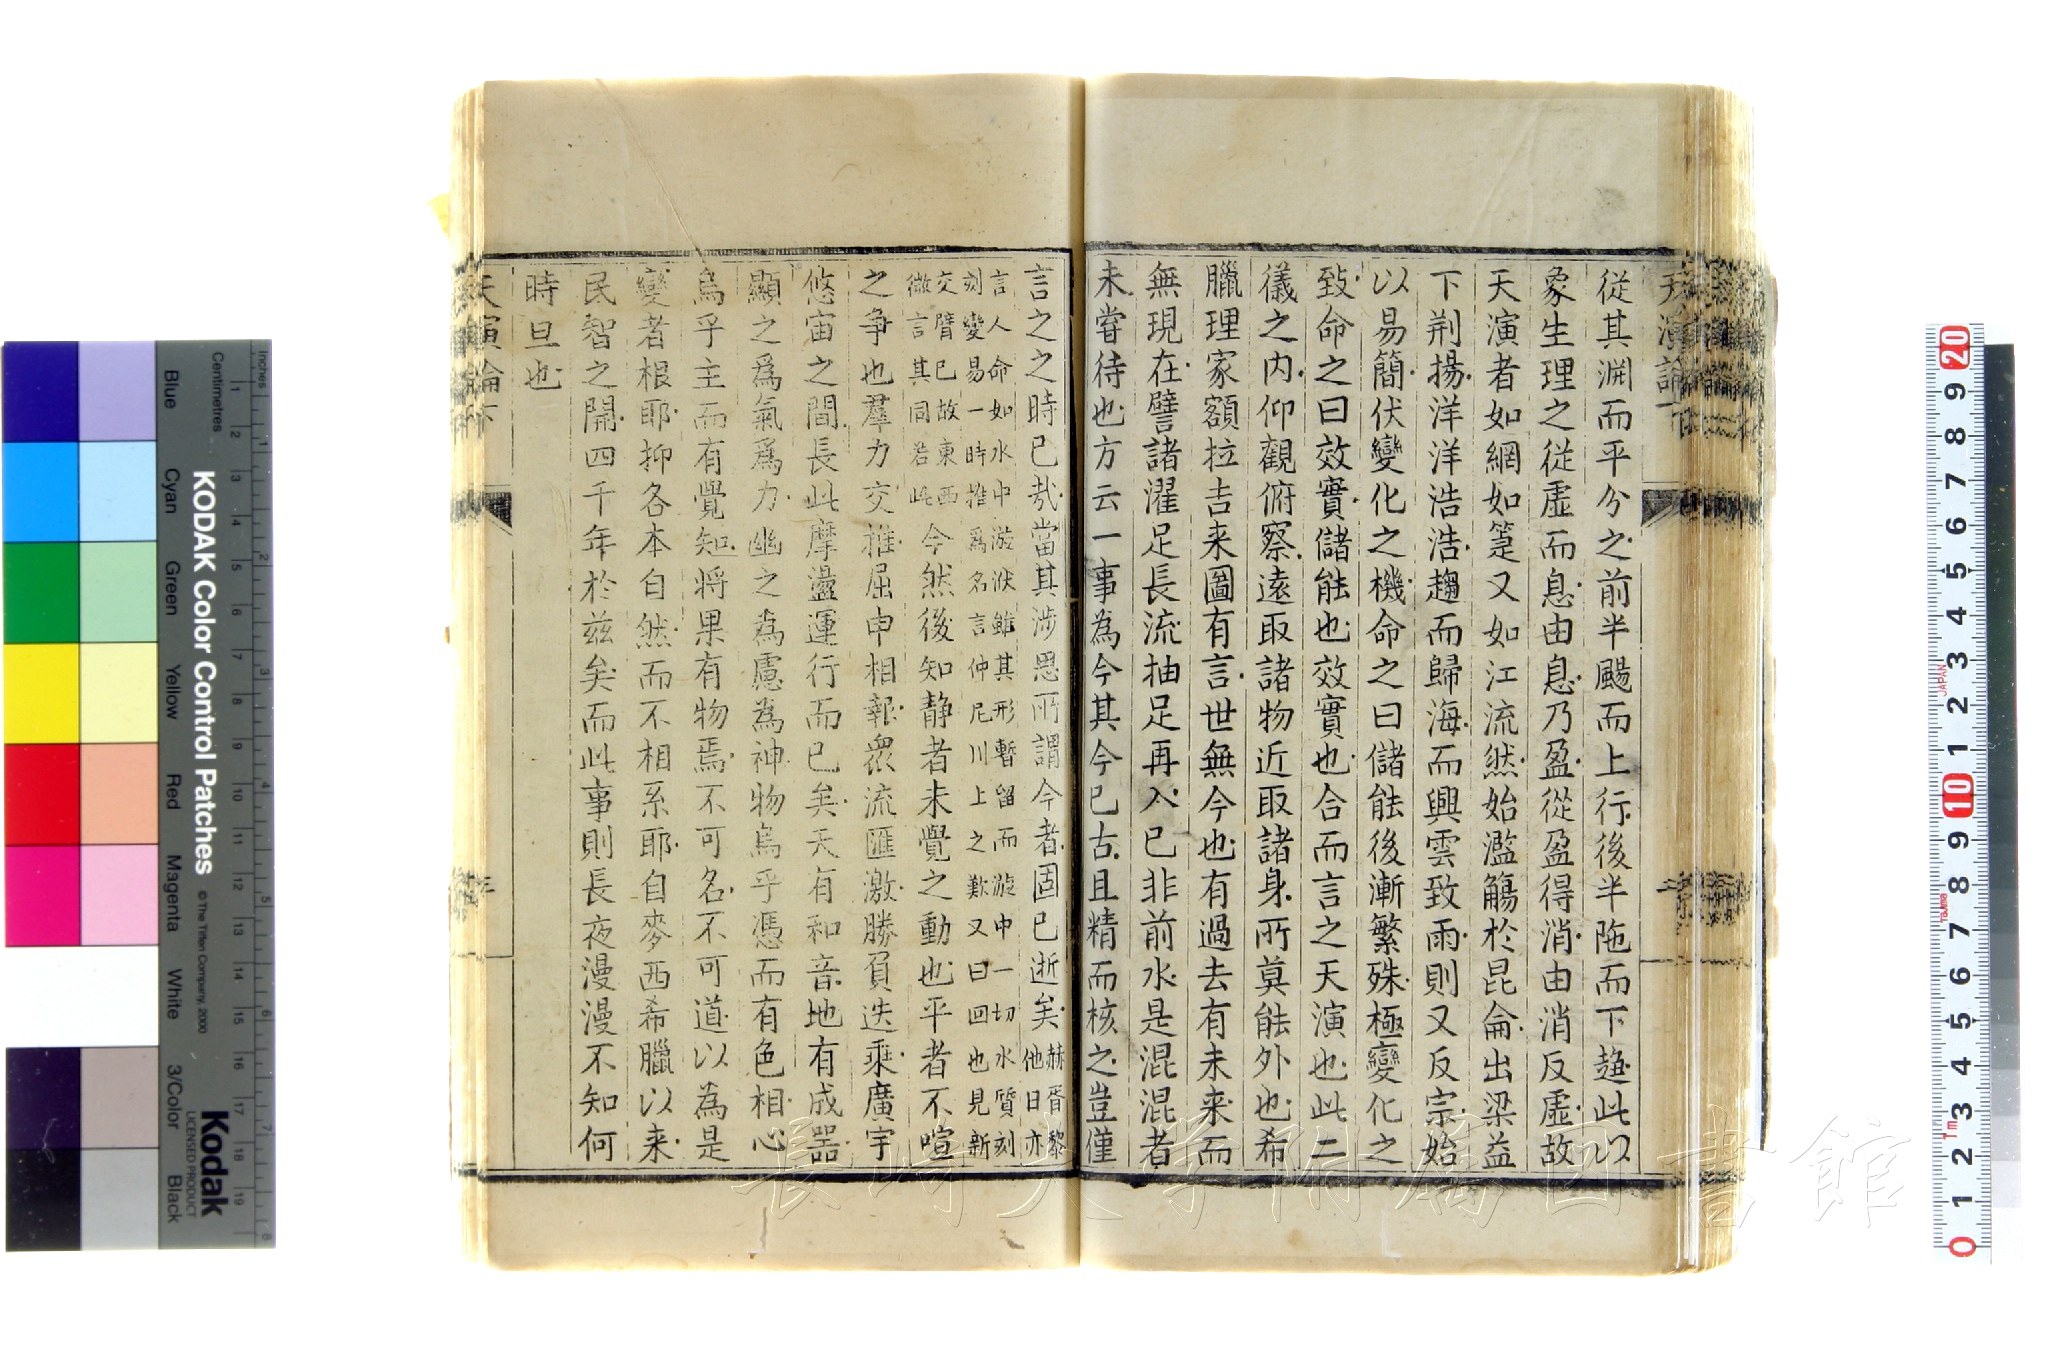 天演論下
從其淵而平分之前半颺而上行後半陁而下趍此以
象生理之從虛而息由息乃盈從盈得消由消反虛故
天演者如網如箑又如江流然始濫觴於昆侖出梁益
下荆揚洋洋浩浩趨而歸海而興雲致雨則又反宗始
以易簡伏變化之機命之曰儲能後漸繁殊極變化之
致命之曰效實儲能也效實也合而言之天演也此二
儀之内仰觀俯察遠取諸物近取諸身所莫能外也希
臘理家額拉吉来圖有言世無今也有過去有未来而
無現在譬諸濯足長流抽足再入已非前水是混混者
未嘗待也方云一事為今其今已古且精而核之豈僅
言之之時已哉當其涉思所謂今者固已逝矣赫胥黎
他日亦
言人命如水中漩洑雖其形暫留而漩中一切水質刻
刻變易一時推為名言仲尼川上之歎又曰回也見新
交臂已故東西
微言其同若此今然後知静者未覺之動也平者不喧
之争也羣力交推屈申相報衆流匯激勝負迭乘廣宇
悠宙之間長此摩盪運行而已矣天有和音地有成器
顯之爲氣爲力幽之為慮為神物烏乎憑而有色相心
烏乎主而有覺知将果有物焉不可名不可道以為是
變者根耶抑各本自然而不相系耶自麥西希臘以来
民智之開四千年於兹矣而此事則長夜漫漫不知何
時旦也
天演論下
三
KODAK Color Control Patches
© The Tiffen Company, 2000
Kodak
LICENSED PRODUCT
Inches
Centimetres
Blue
Cyan
Green
Yellow
Red
Magenta
White
3/Color
Black
1 2 3 4 5 6 7 8
1 2 3 4 5 6 7 8 9 10 11 12 13 14 15 16 17 18 19
20 9 8 7 6 5 4 3 2 1 10 9 8 7 6 5 4 3 2 1 0
JAPAN
Tajima
1m
長崎大学附属図書館